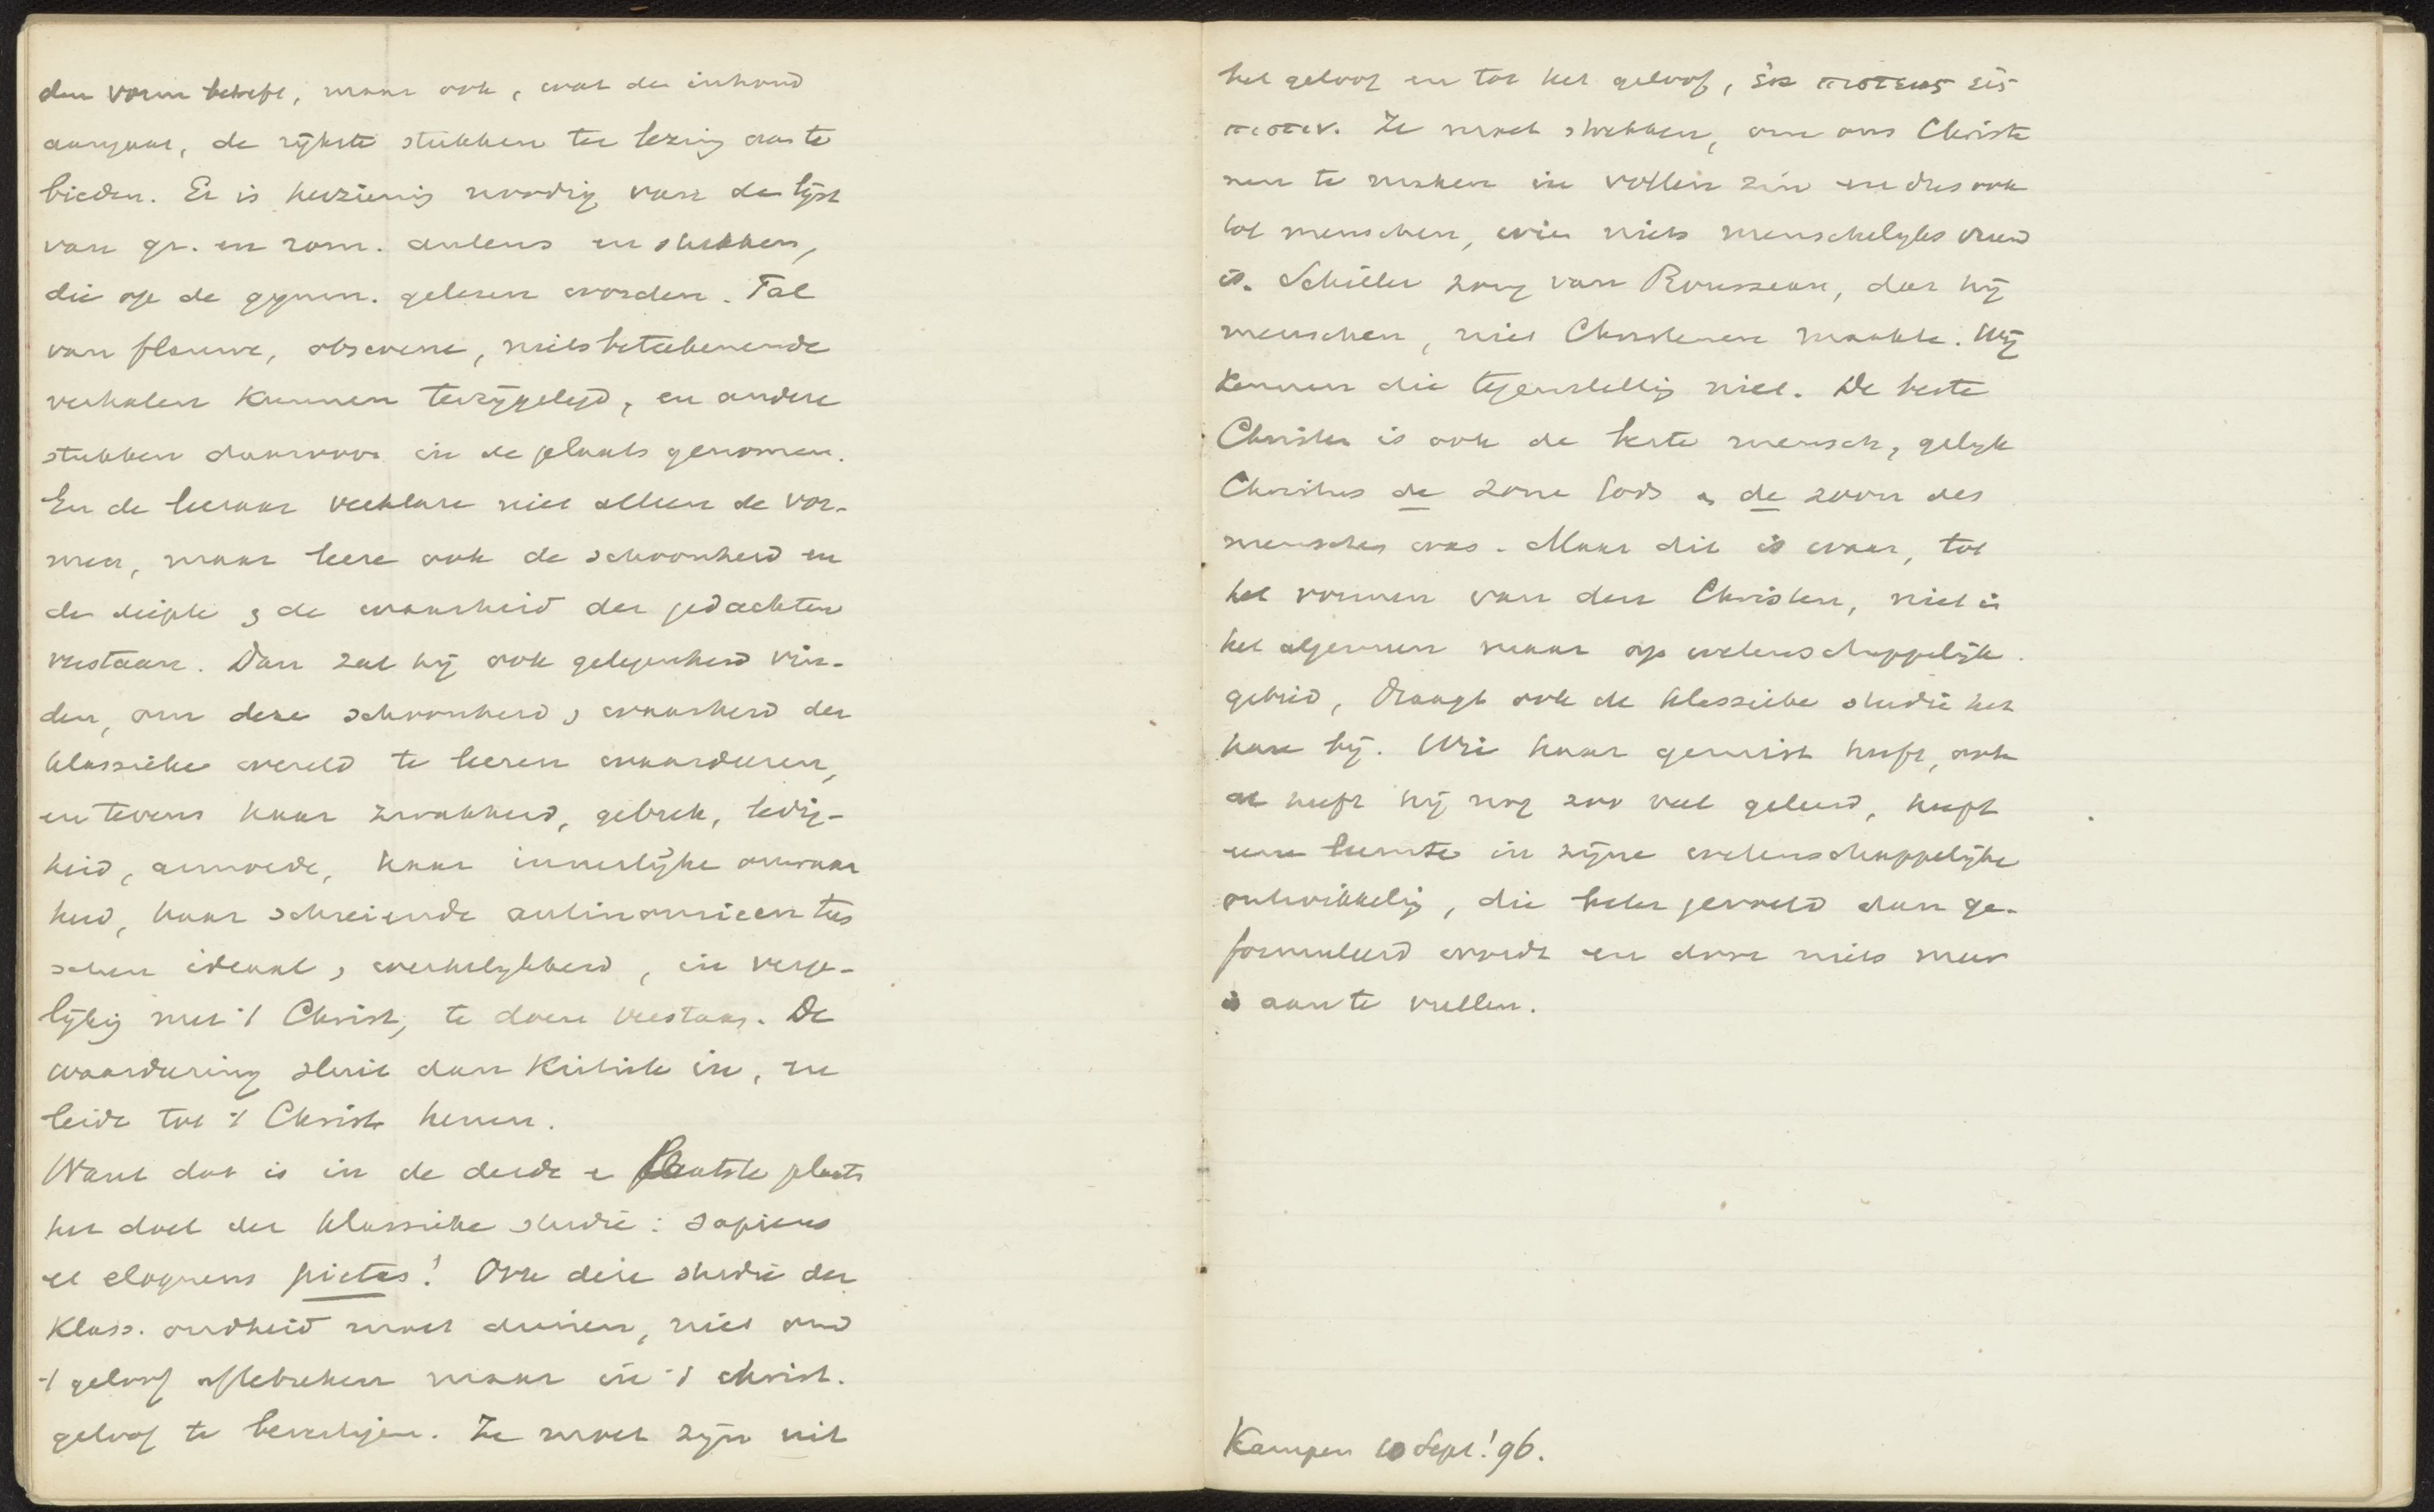 den vorm betreft, maar ook, wat den inhoud
aangaat, de rijkste stukken ter lezing aan te
bieden. Er is herziening noodig van de lijst
van gr. en rom. auteurs en stukken,
die op de gymn. gelezen worden. Tal
van flauwe, obscene, nietsbeteekenende
verhalen kunnen terzijgelegd, en andere
stukken daarvoor in de plaats genomen.
En de leeraar verklare niet alleen de vor-
men, maar leere ook de schoonheid en
de diepte & de waarheid der gedachten
verstaan. Dan zal hij ook gelegenheid vin-
den, om deze schoonheid & waarheid der
klassieke wereld te leeren waardeeren,
en tevens haar zwakheid, gebrek, ledig-
heid, armoede, haar innerlijke onwaar
heid, haar schreiende antinomieen tus
schen ideaal & werkelijkheid, in verge-
lijkig met 't Christ, te doen verstaan. De
waardeering sluit dan kritiek in, en
leide tot 't Christ. henen.
Want dat is in de derde & laatste plaats
het doel der klassieke studie: sapiens
et eloquens pietas! Ook deze studie der
Klass. oudheid moet dienen, niet om
't geloof afte breken maar in 't christ.
geloof te bevestigen. Ze moet zijn uit
het geloof en tot het geloof, ἐκ πιστεως εἰς
πιστιν. Ze moet strekken, om ons Christe
nen te maken in vollen zin en dus ook
tot menschen, wien niets menschelijks vreemd
is. Schiller zong van Rousseau, dat hij
menschen, niet Christenen maakte. Wij
kennen die tegenstellig niet. De beste
Christen is ook de beste mensch, gelijk
Christus de zone Gods & de zoon des
menschen was. Maar dit is waar, tot
het vormen van den Christen, niet in
het algemeen maar op wetenschappelijk
gebied, draagt ook de klassieke studie het
hare bij. Wie haar gemist heeft, ook
al heeft hij nog zoo veel geleerd, heeft
eene leemte in zijne wetenschappelijke
ontwikkelig, die beter gevoeld dan ge-
formuleerd wordt en door niets meer
is aan te vullen.
Kampen 10 Sept! 96.